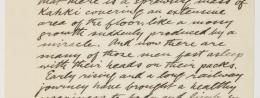 that there is a spreading mass of
Kahki covering an extensive
area of the floor like a mossy
growth suddenly produced by a
miracle. And now there are
many of those men fast asleep
with their heads on their packs.
Early rising and a long railway
journey have brought a healthy